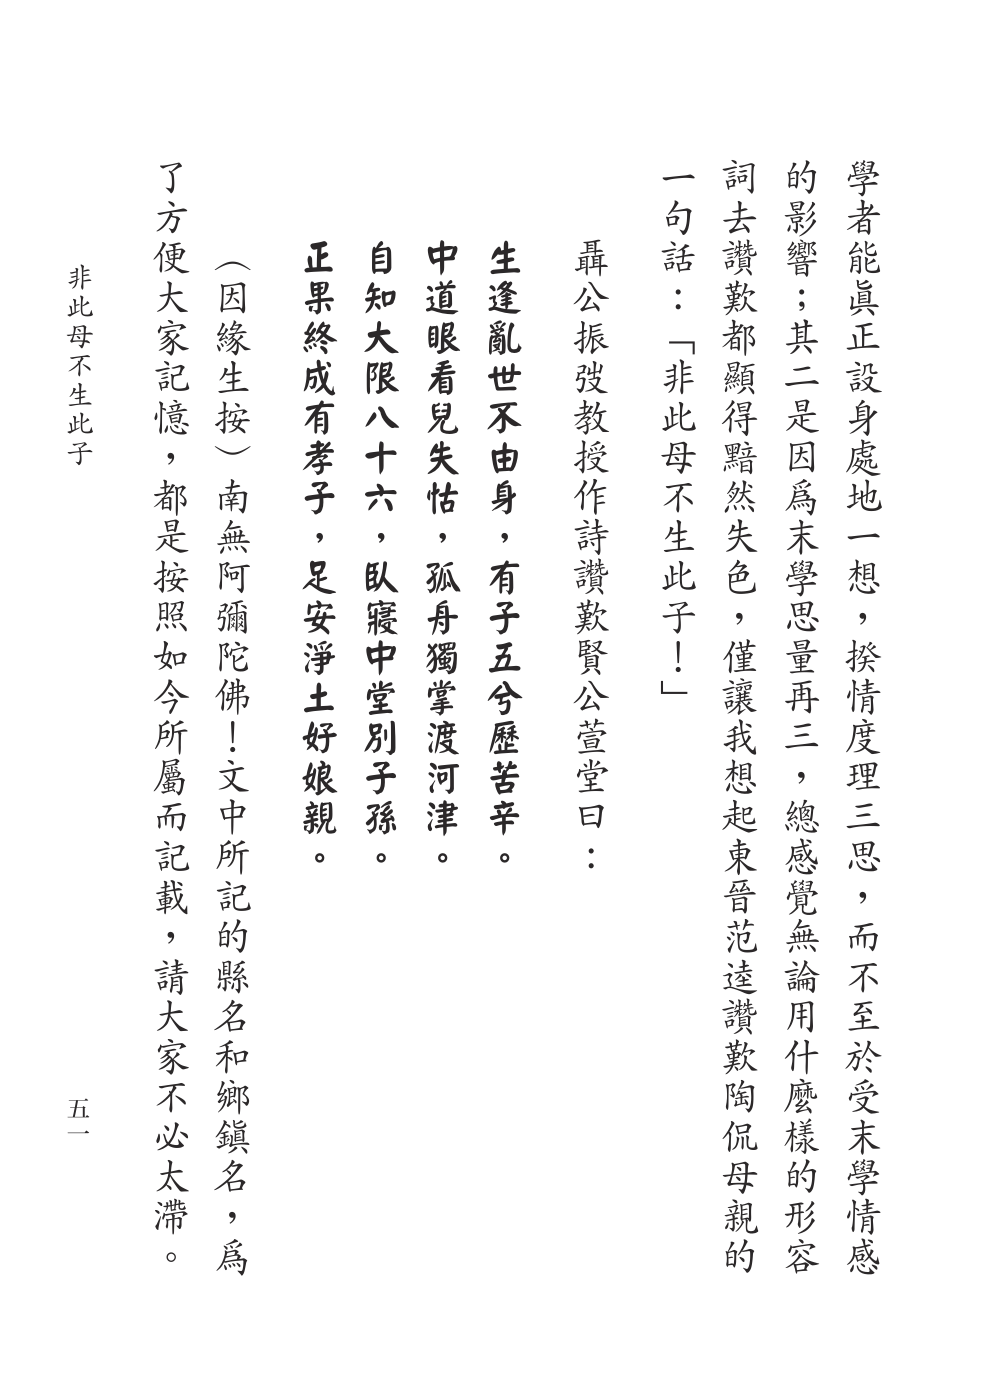 學者能眞正設身處地一想，揆情度理三思，而不至於受末學情感
的影響；其二是因爲末學思量再三，總感覺無論用什麼樣的形容
詞去讚歎都顯得黯然失色，僅讓我想起東晉范逵讚歎陶侃母親的
一句話：「非此母不生此子！」
聶公振弢教授作詩讚歎賢公萱堂曰：
生逢亂世不由身，有子五兮歷苦辛。
中道眼看兒失怙，孤舟獨掌渡河津。
自知大限八十六，臥寢中堂別子孫。
正果終成有孝子，足安淨土好娘親。
（因緣生按）南無阿彌陀佛！文中所記的縣名和鄉鎭名，爲
了方便大家記憶，都是按照如今所屬而記載，請大家不必太滯。
非此母不生此子
五一